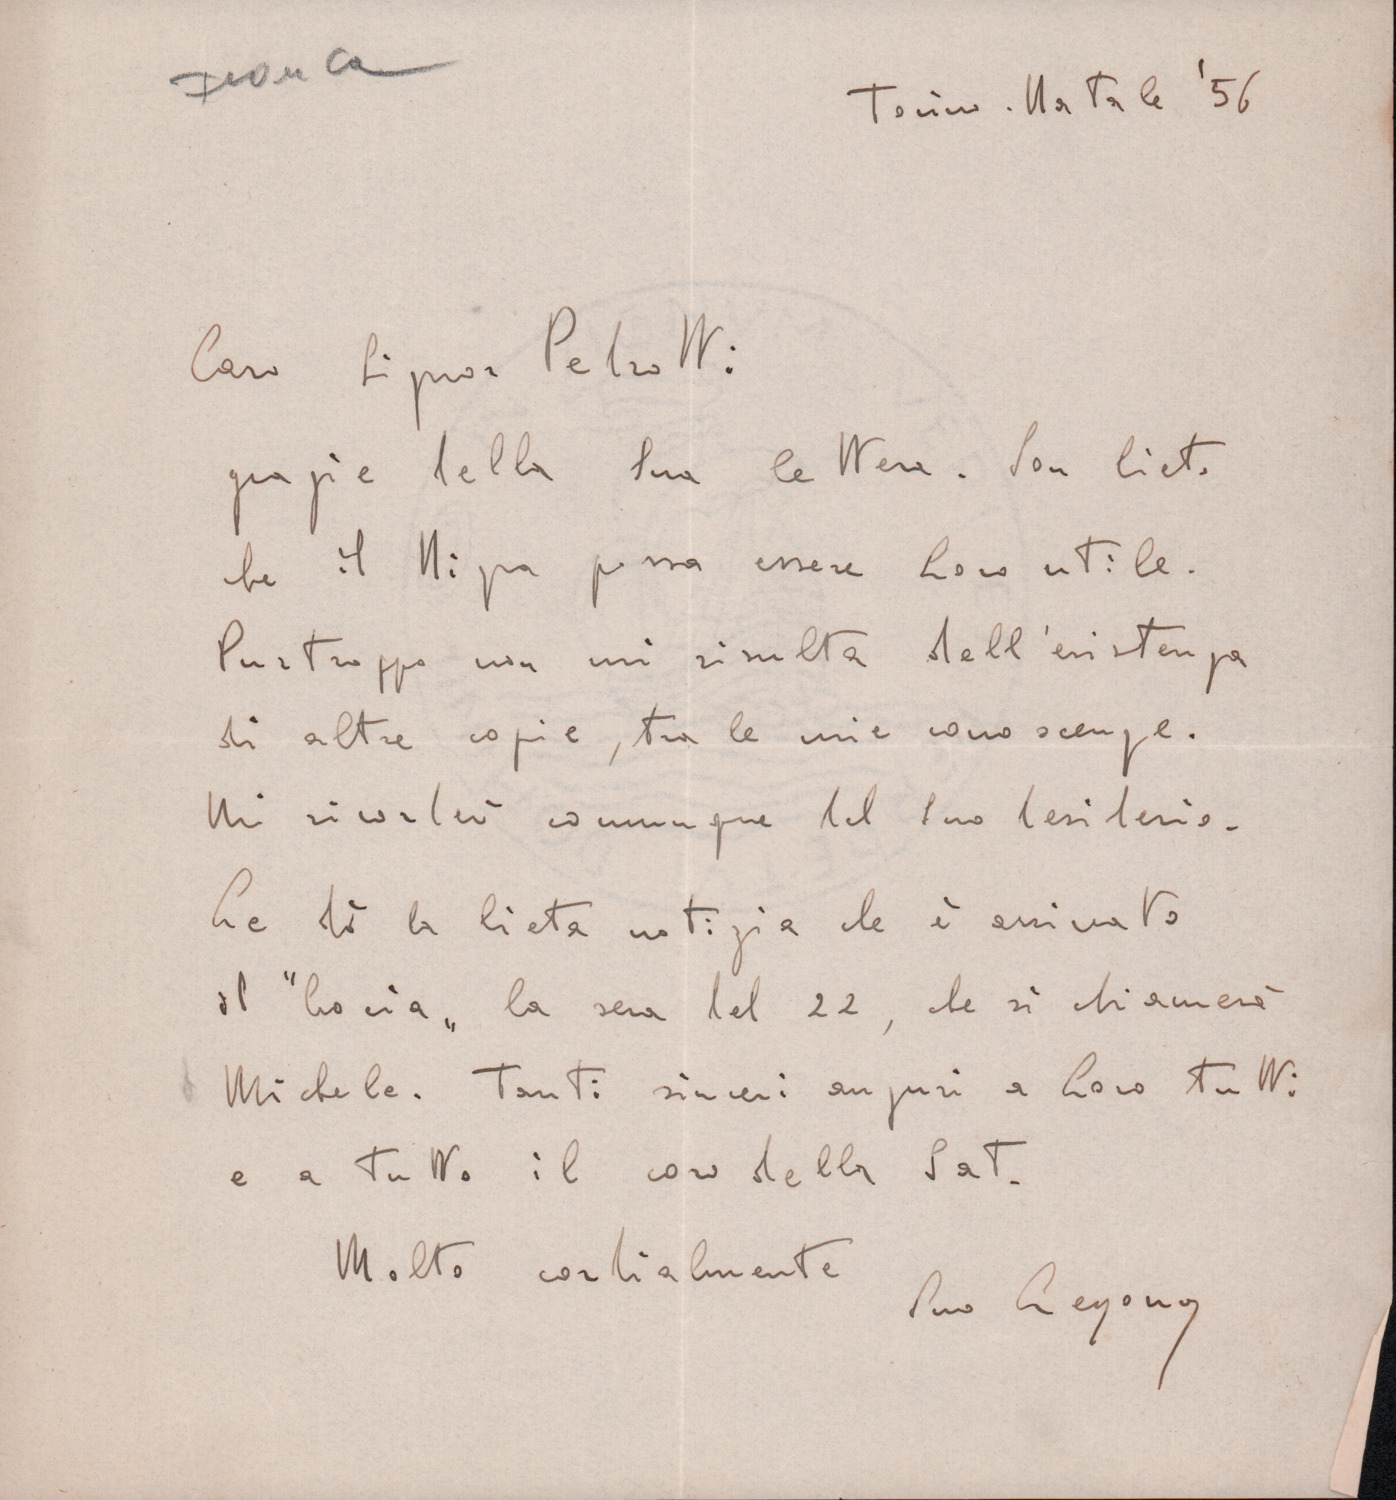 Torino. Natale '56
Caro Signor Pedrotti:
grazie della Sua lettera. Son lieto
che il Nigra possa essere Loro utile.
Purtroppo non mi risulta dell'esistenza
di altre copie, tra le mie conoscenze.
Mi ricorderò comunque del Suo desiderio.
Le dò la lieta notizia che è arrivato
il "Lovia„ la sera del 22, che si chiamerà
Michele. Tanti sinceri auguri a Loro tutti
e a tutto il coro della Sat.
Molto cordialmente
Suo